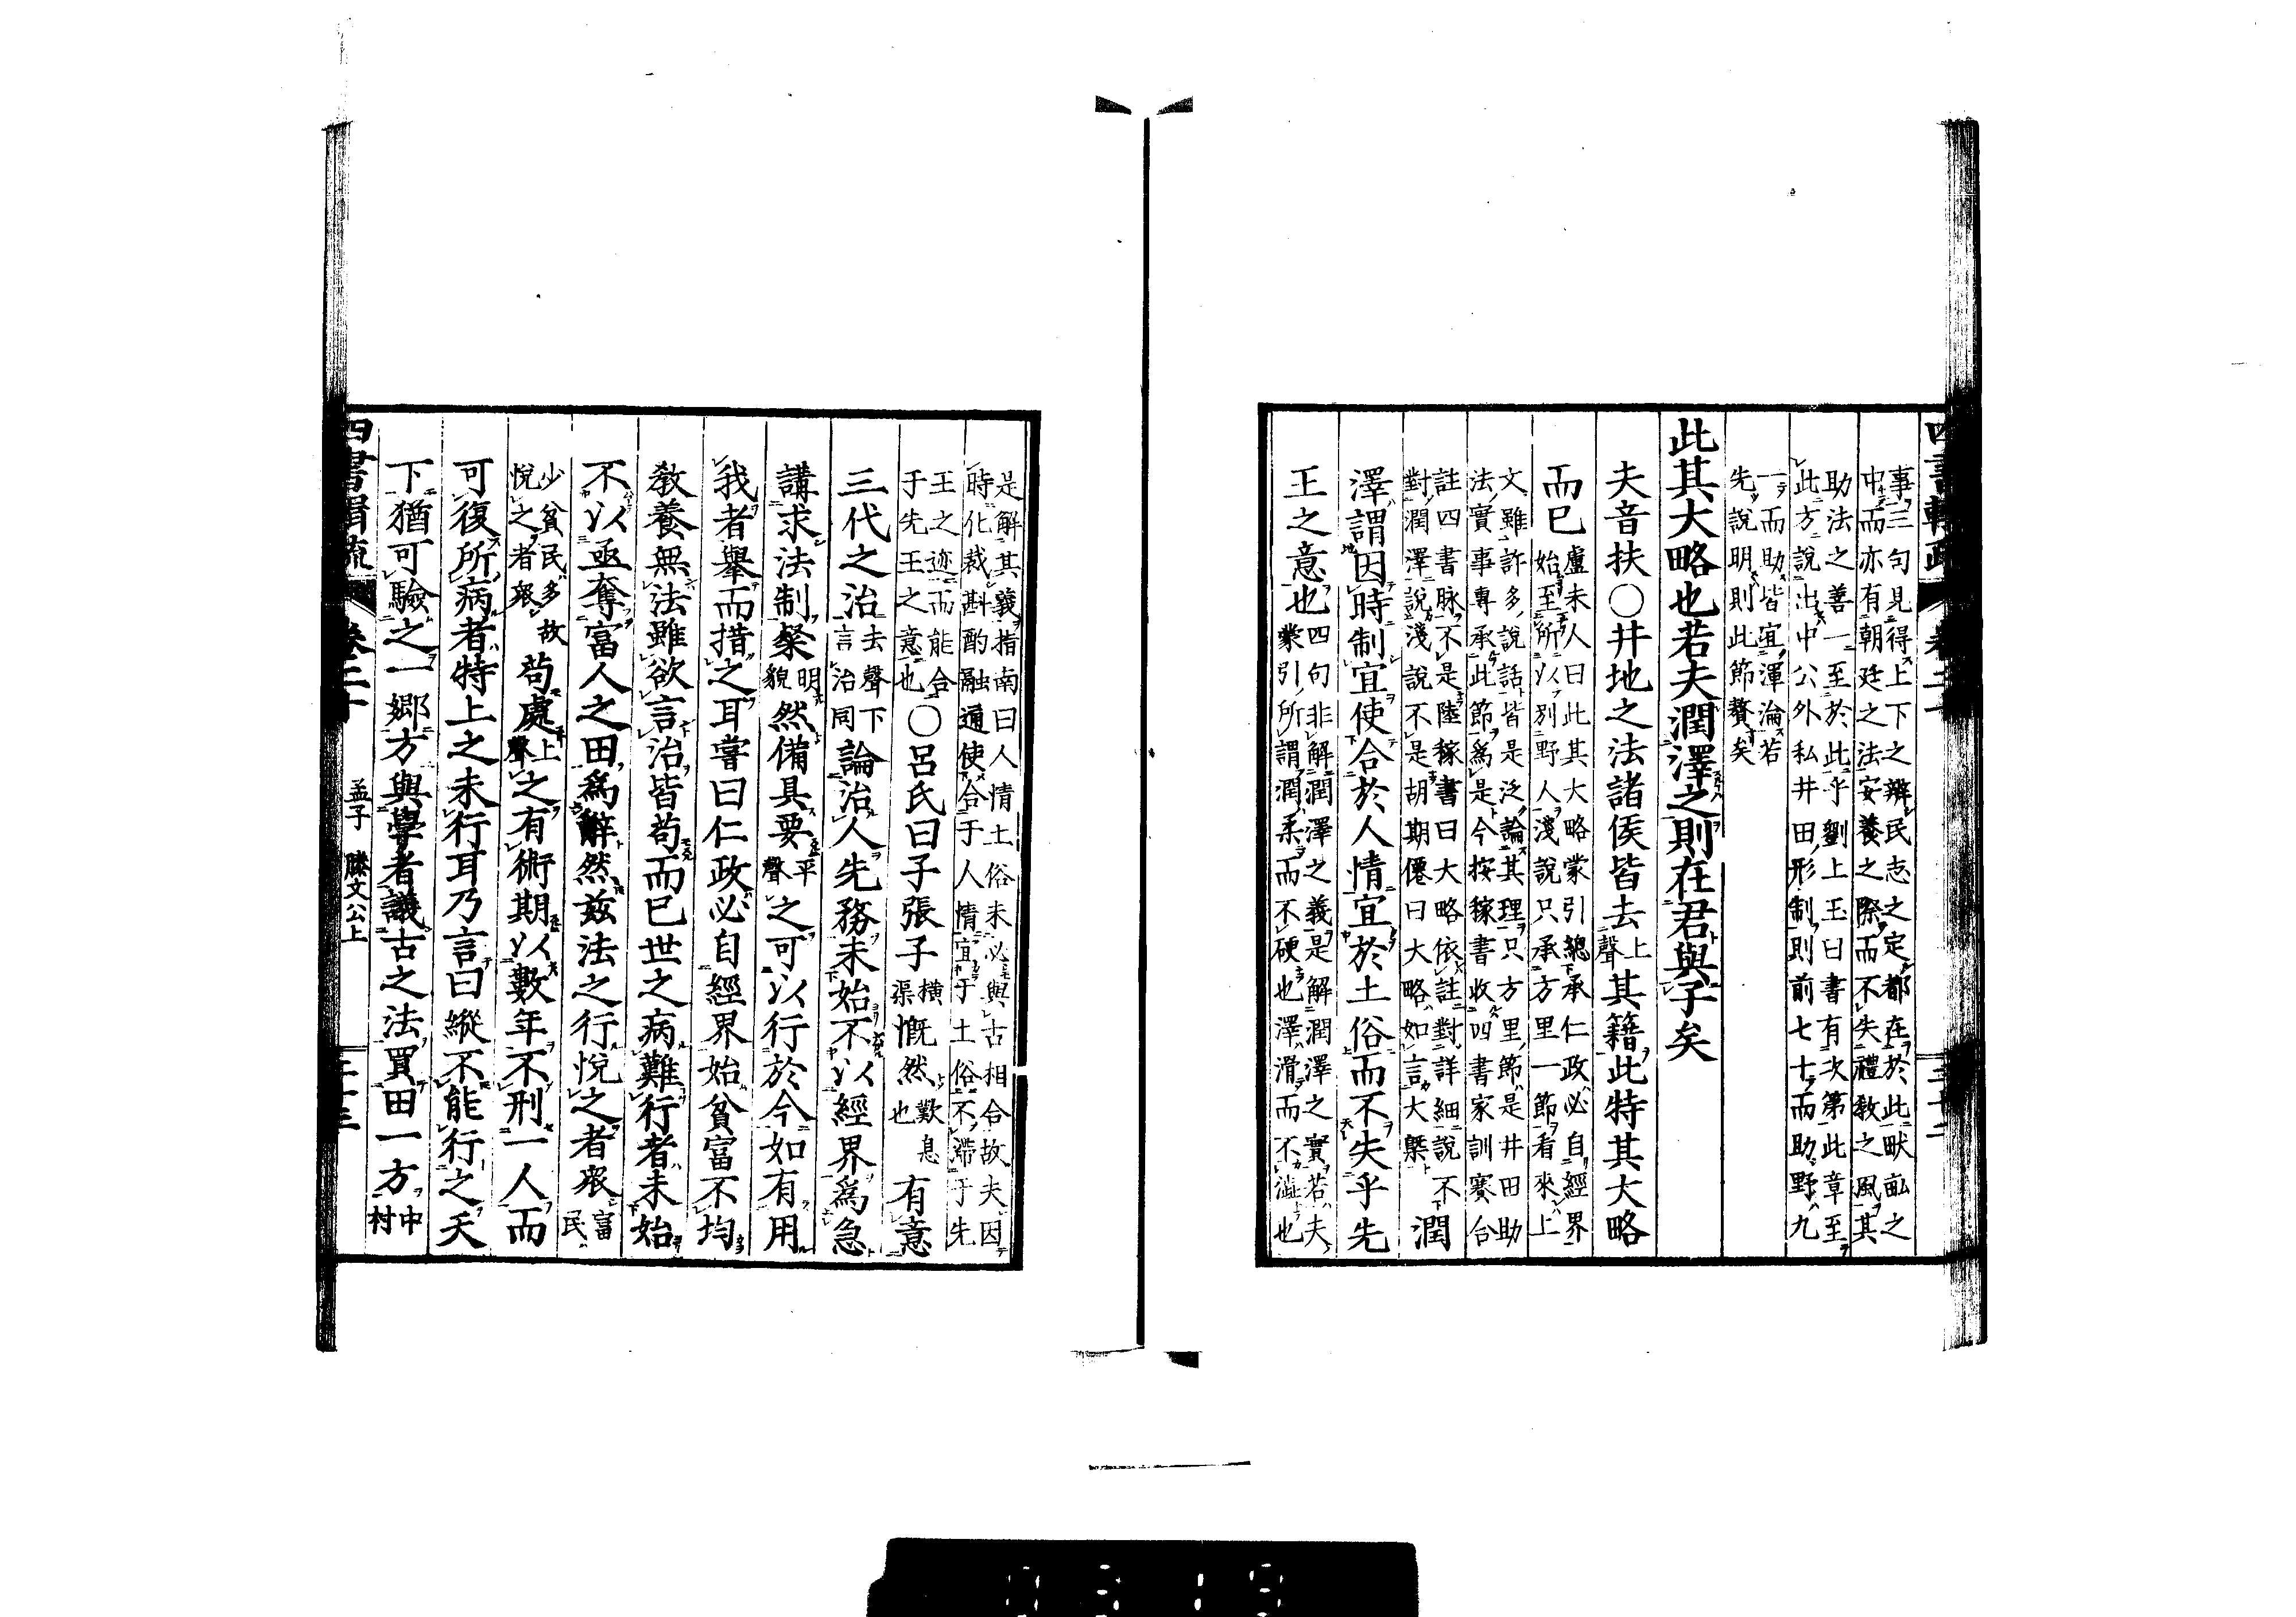 事三句見得上下之辨民志之定都在於此畎畝之
中而亦有朝廷之法安養之際而不失禮教之風其
助法之善一至於此乎劉上玉曰書有次第此章至
此方說出中公外私井田形制則前七十而助野九
一而助皆宜渾淪若
先說明則此節贅矣
此其大略也若夫潤澤之則在君與子矣
夫音扶○井地之法諸侯皆去上聲其籍此特其大略
而已盧未人曰此其大略蒙引總承仁政必自經界
始至所以別野人淺說只承方里一節看來上
文雖許多說話皆是泛論其理只方里節是井田助
法實事專承此節爲是今按稼書收四書家訓賽合
註四書脉不是陸稼書曰大略依註對詳細說不
對潤澤說淺說不是胡期僊曰大略如言大槩潤
澤謂因時制宜使合於人情宜於土俗而不失乎先
王之意也四句非解潤澤之義是解潤澤之實若夫
蒙引所謂潤柔而不硬也澤滑而不澁也
是解其義指南曰人情土俗未必與古相合故夫因
時化裁斟酌融通使合于人情宜于土俗不滯于先
王之迹而能合
于先王之意也○呂氏曰子張子橫渠慨然歎息也有意
三代之治去聲下言治同論治人先務未始不以經界爲急
講求法制粲明貌然備具要平聲之可以行於今如有用
我者舉而措之耳嘗曰仁政必自經界始貧富不均
敎養無法雖欲言治皆苟而已世之病難行者未始
不以亟奪富人之田爲辭然茲法之行悅之者衆富民
少貧民多故
悅之者衆苟處上聲之有術期以數年不刑一人而
可復所病者特上之未行耳乃言曰縱不能行之天
下猶可驗之一鄉方與學者議古之法買田一方中村
四書輯疏 卷二十 孟子 滕文公上